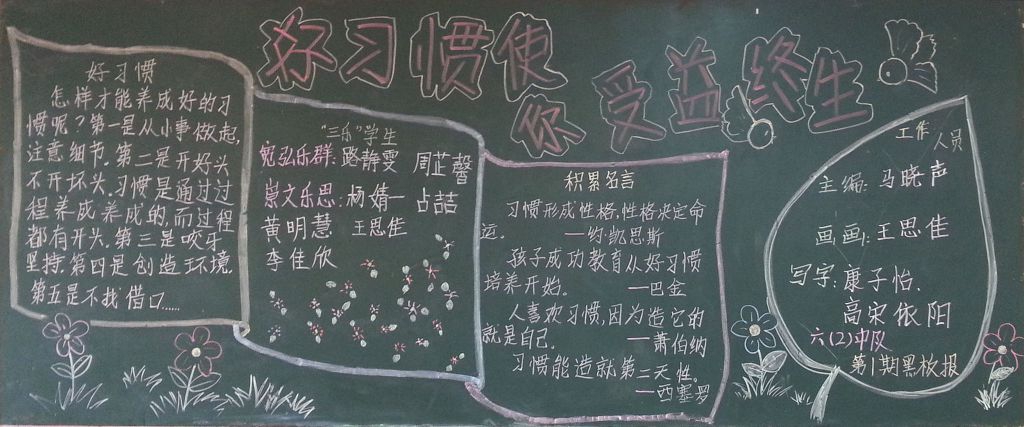 好习惯使
你受益终生
好习惯
怎样才能养成好的习
惯呢?第一是从小事做起,
注意细节。第二是开好头
不开坏头。习惯是通过过
程养成养成的,而过程
都有开头。第三是咬牙
坚持。第四是创造环境。
第五是不找借口……
"三乐"学生
宽弘乐群:路静雯 周芷馨
崇文乐思:杨婧一 占喆
黄明慧 王思佳
李佳欣
积累名言
习惯形成性格,性格决定命
运。 —约·凯恩斯
孩子成功教育从好习惯
培养开始。 —巴金
人喜欢习惯,因为造它的
就是自己。 —萧伯纳
习惯能造就第二天性。
—西塞罗
工作人员
主编:马晓声
画画:王思佳
写字:康子怡.
高宋依阳
六(2)中队
第1期黑板报